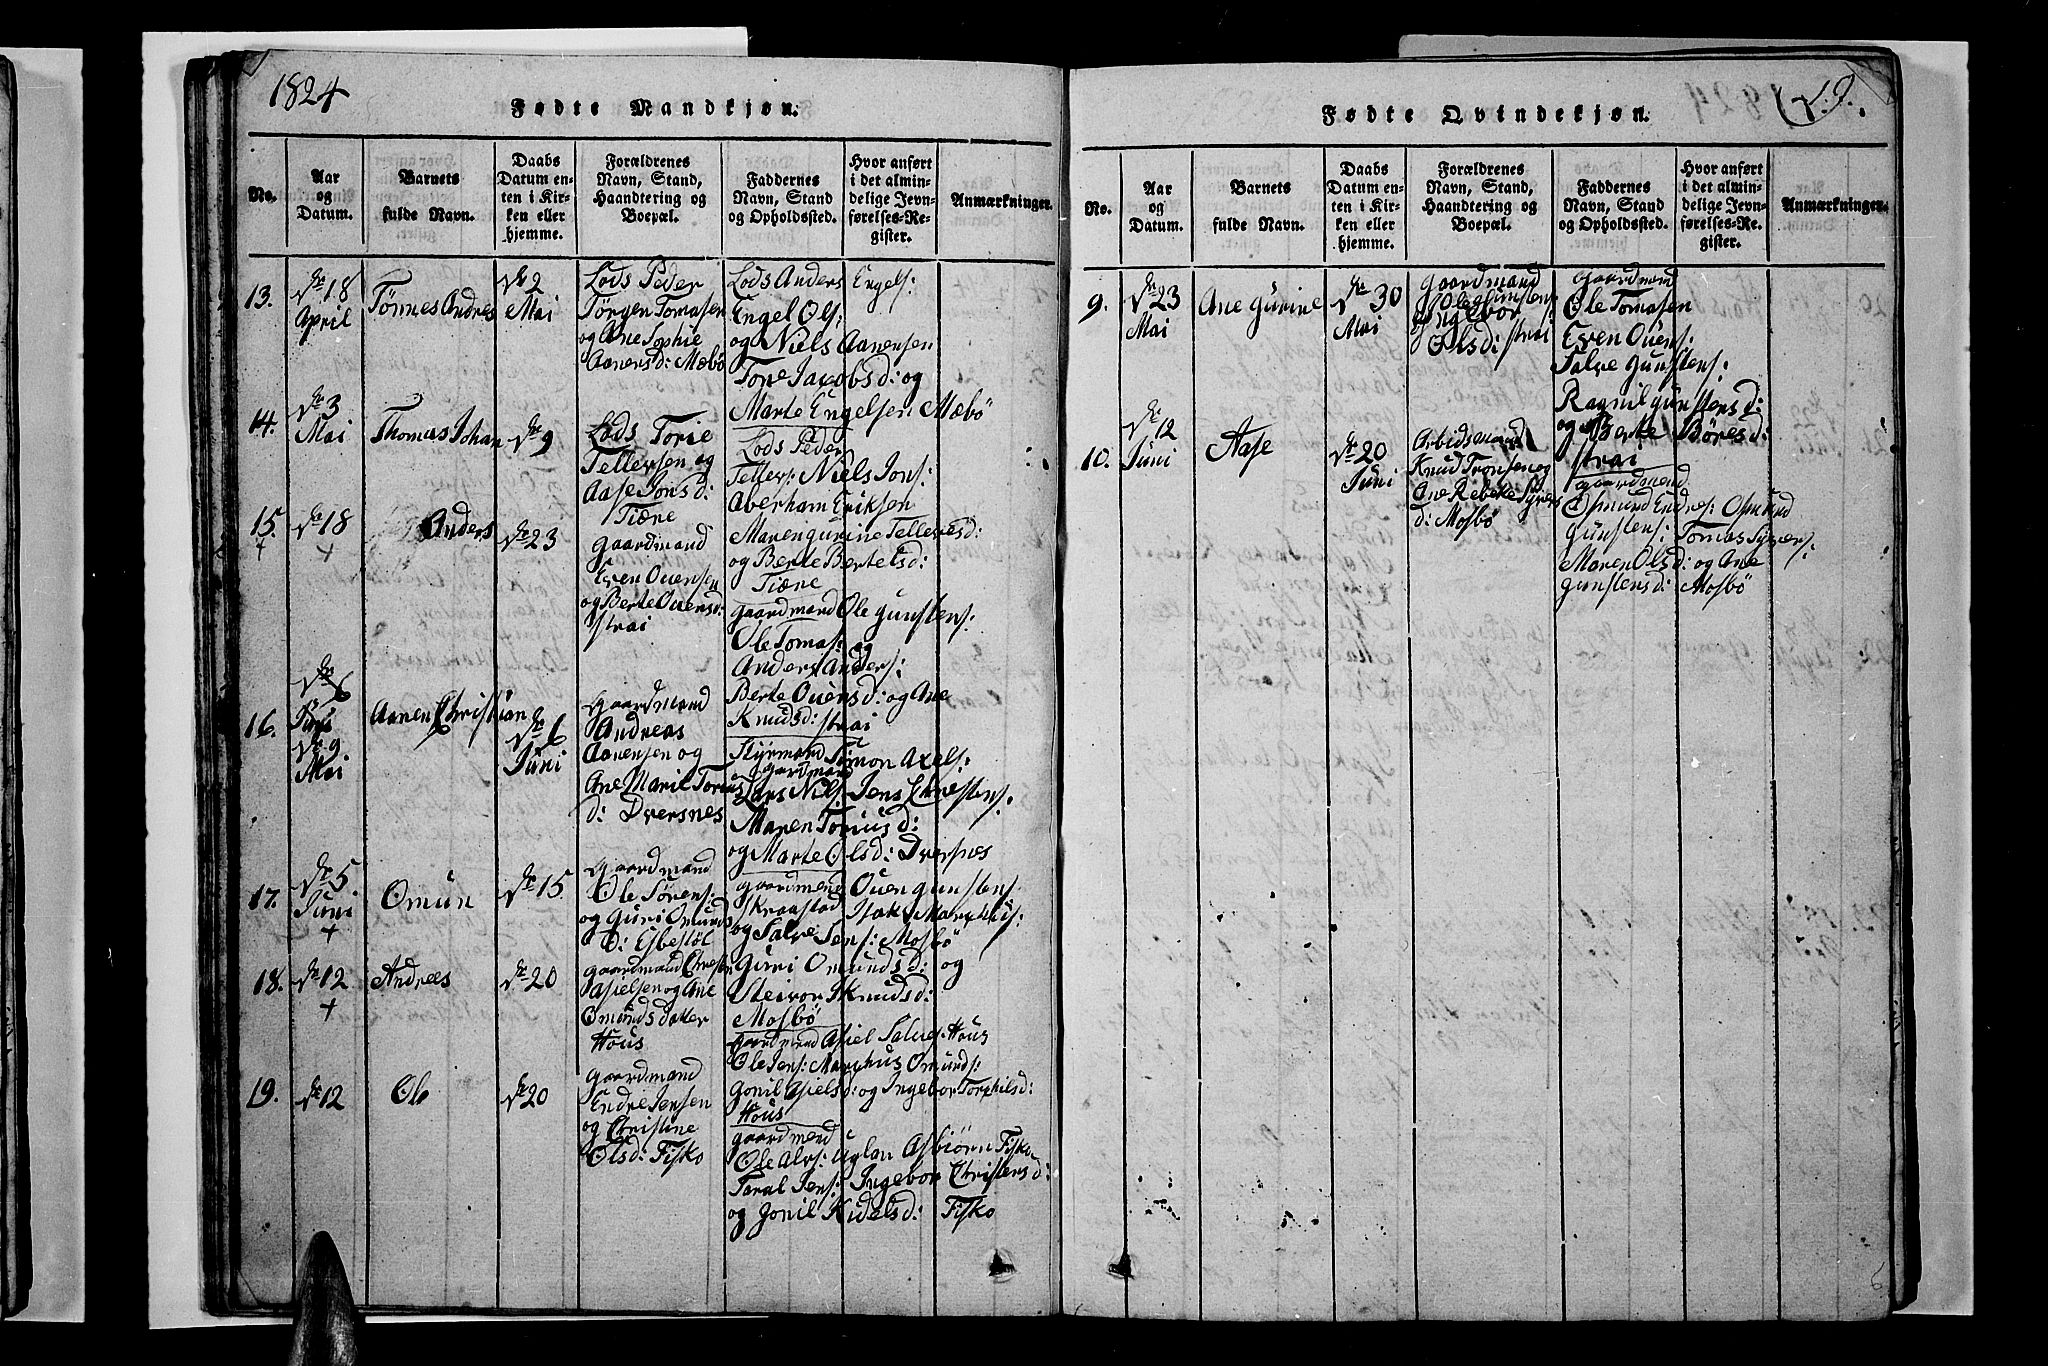 1824
Fødte Mandkjøn.
No.
Aar
og
Datum.
Barnets
fulde Navn.
Daabs
Datum en-
ten i Kir-
ken eller
hjemme.
Forældrenes
Navn, Stand,
Haandtering og
Boepæl.
Faddernes
Navn, Stand
og Opholdssted.
Hvor anført
i det almin-
delige Jevn-
førelses-Re-
gister.
Anmærkninger.
13.
18
April
Tønnes Andres
2
Mai
Lods Peder
Jørgen Tomasen
og Ane Sophie
Aanensd: Mæbø
Lods Anders Engels:
Engel Ols:
og Niels Aanensen
Tone Jacobsd: og
Marte Engelsen Mæbø
14.
3
Mai
Thomas Johan
9
Lods Torie
Tellefsen og
Aase Jonsd:
Tiæne
Lods Peder
Tellefs: Niels Jons:
Aberham Eriksen
Maren gurine Tellevsd:
og Berte Bertelsd:
Tiæne
15.
+
18
+
Anders
23
gaardmand
Even Ouensen
og Berte Ouensd:
Strai
gaardmand Ole gunstens:
Ole Tomas: og
Anders Anders:
Berte Ouensd: og Ane
Knudsd: Strai
16.
6
Juni
9
Mai
Aanen Christian
6
Juni
gaardmand
Andreas
Aanensen og
Ane Marie Torius
d: Dversnes
Styrmand Simon Axels:
og gaardmand
Lars Niels: Jens Christens:
Maren Toriusd:
og Marte Olsd: Dversnes
17.
5
Juni
+
Omun
15
gaardmand
Ole Sørens:
og Guri Omunds
D: Esbestøl
gaardmend Ouen gunstens:
Skraastad Isak Marchus:
og Salve Jens: Mosbø
Guri Omundsd: og
Steivor Knudsd:
Mosbø
18.
12
+
Andreas
20
gaardmand Christen
Asielsen og Ane
Omundsdatter
Hous
gaardmend Asiel Salves: Hous
Ole Jens: Marchus Omunds:
Gonil Asielsd: og Ingebor Torkilsd:
Hous
19.
12
Ole
20
gaardmand
Endre Jensen
og Christine
Olsd: Fisko
gaardmend
Ole Alvs: Uglan Asbiørn Fisko
Taral Jens: Ingebor Christensd:
og Gonil Kidelsd: Fisko
19.
Fødte Qvindekjøn.
No.
Aar
og
Datum.
Barnets
fulde Navn.
Daabs
Datum en-
ten i Kir-
ken eller
hjemme.
Forældrenes
Navn, Stand,
Haandtering og
Boepæl.
Faddernes
Navn, Stand
og Opholdssted.
Hvor anført
i det almin-
delige Jevn-
førelses-Re-
gister.
Anmærkninger.
9.
23
Mai
Ane Gurine
30
Mai
gaardmand
Ole gunstens:
og Ingebor
Olsd: Strai
gaardmend
Ole Tomasen
Even Ouens:
Salve gunstens:
Ragnil gunstensd:
og Berte Børesd:
Strai
10.
12
Juni
Aase
20
Juni
Arbidsmand
Knud Tronsen og
Ane Rebeke Syvers
d: Mosbø
gaardmend
Osmund Endres: Osmund
gunstens: Tomas Syvers:
Maren Olsd: og Ane
gunstensd: Mosbø